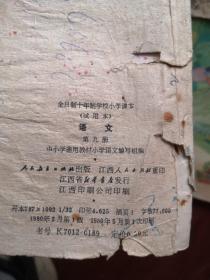 全日制十年制学校小学课本
(试用本)
语文
第九册
中小学通用教材小学语文编写组编
人民教育出版社出版 江西人民出版社重印
江西省新华书店发行
江西印刷公司印刷
开本787×1092 1/32 印张4.625 字数77,000
1980年2月第1版 1980年5月第1次印刷
书号 K7012·6189 定价0.30元